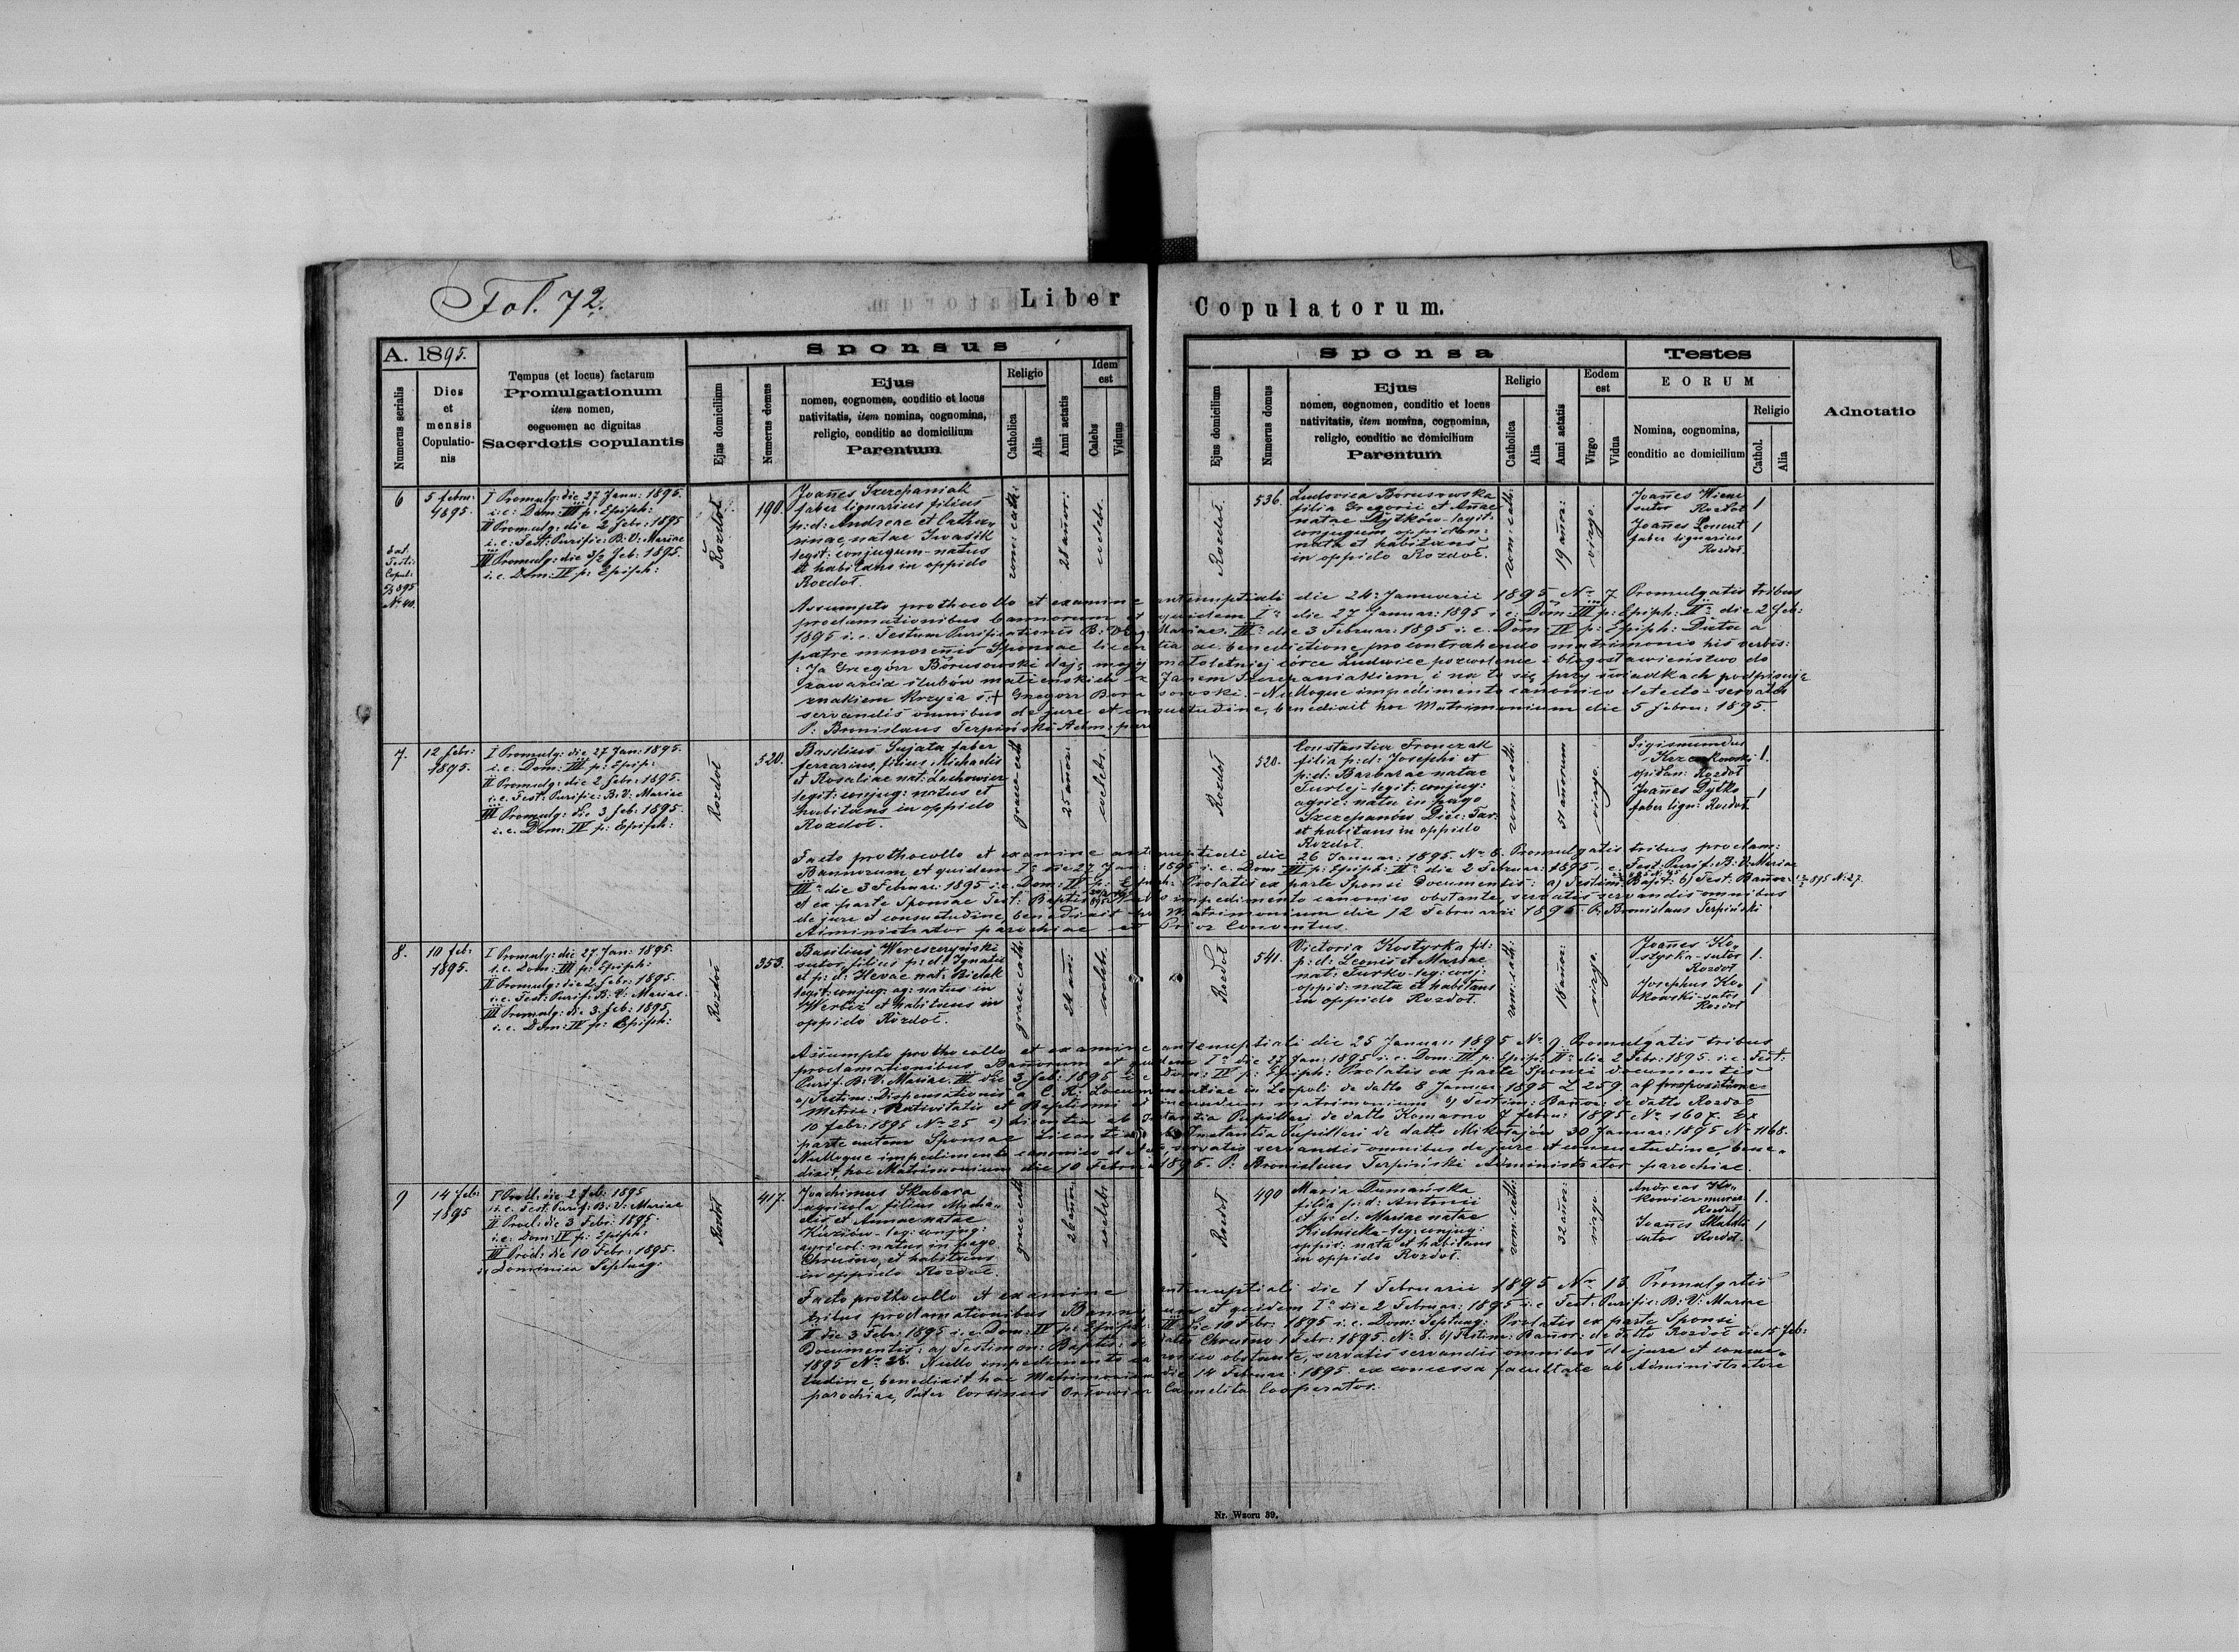 Fol. 72.
Liber
Copulatorum.
A. 1895.
Numerus serialis
Dies
et
mensis
Copulatio-
nis
Tempus (et locus) factarum
Promulgationum
item nomen,
cognomen ac dignitas
Sacerdotis copulantis
Sponsus
Ejus domicilium
Numerus domus
Ejus
nomen, cognomen, conditio et locus
nativitatis, item nomina, cognomina,
religio, conditio ac domicilium
Parentum
Religio
Catholica
Alia
Anni aetatis
Idem
est
Calebs
Viduus
Sponsa
Ejus domicilium
Numerus domus
Ejus
nomen, cognomen, conditio et locus
nativitatis, item nomina, cognomina,
religio, conditio ac domicilium
Parentum
Religio
Catholica
Alia
Anni aetatis
Eodem
est
Virgo
Vidua
Testes
EORUM
Nomina, cognomina,
conditio ac domicilium
Religio
Cathol.
Alia
Adnotatio
6
5 febru:
1895.
I Promulg: die 27 Janu: 1895.
i: e: Dom: III p: Epiph:
II Promulg: die 2 febr: 1895
i. e: Fest: Purific: B: V: Mariae
III Promulg: die 3/2 Feb: 1895.
i. e. Dom: IV p: Epiph:
Rozdoł
190.
Joañes Szczepaniak
faber lignarius filius
p: d: Andreae et Catha-
rinae natae Iwasik
legit: conjugum natus
et habitans in oppido
Rozdoł.
rom: cath:
28 añor:
caelebs.
Rozdoł.
536.
Ludovica Borusowska
filia Gregorii et Añae
natae Dytków legit:
conjugum oppidan:
nata et habitans
in oppido Rozdoł.
rom: cath:
19 añor:
virgo.
Joañes Wiene
sutor Rozdoł
1
Joañes Lorent
faber lignarius
Rozdoł.
1
Nº 40.
Assumpto prothocollo et examine antenuptiali die 24: Januarii 1895 Nº 7 Promulgatis tribus
proclamationibus bannorum et quidem Iª die 27 Januar: 1895 i. e: Dom: III p: Epiph: IIª die 2 feb:
1895 i. e. Festum Purificationis B: Virg: Mariae. IIIª die 3 Februar: 1895 i. e. Dom IV p: Epiph: Data a
patre minorenis Sponsae licentia ac benedictione pro contrahendo matrimonio his verbis:
: Ja Grzegórz Borusowski daję mojej małoletniej córce Ludwice pozwolenie i błogosławieństwo do
zawarcia ślubów małżeńskich z Janem Szczepaniakiem i na to się przy świadkach podpisuję
znakiem krzyża ś: + Grzegorz Borusowski. - Nulloque impedimento canonico detecto servatis
servandis omnibus de jure et consuetudine, benedixit hoc Matrimonium die 5 febru: 1895.
P: Bronislaus Terpiński Adm: par:
7.
12 febr:
1895.
I Promulg: die 27 Jan: 1895.
i. e. Dom: III p: Epip:
II Promulg: die 2 febr: 1895.
i. e. Fest: Purific: B: V: Mariae
III Promulg: die 3 feb: 1895.
i. e. Dom: IV p: Epiph:
Rozdoł
520.
Basilius Sujata faber
ferrarius, filius Michaelis
et Rosaliae nat: Lachowicz
legit: conjug: natus et
habitans in oppido
Rozdoł.
graeco-cath
25 añor:
caelebs.
Rozdoł
520.
Constantia Fronczak
filia p: d: Josephi et
p: d: Barbarae natae
Turlej legit: conjug:
agric: nata in pago
Szczepanów Diec: Tar:
et habitans in oppido
Rozdoł.
rom: cath:
51 añorum
virgo.
Sigismundus
opidan: Rozdoł
1.
Joañes Dytko
faber lign: Rozdoł
1
Facto prothocollo et examine antenuptiali die 26 Januar: 1895. Nº 8. Promulgatis tribus proclam:
Bannorum et quidem Iª die 27 Jan: 1895 i. e. Dom III p: Epiph: IIª die 2 Februar: 1895 i. e. Fest: Purif: B: V: Mariae
IIIª die 3 Februar: 1895 i. e. Dom: IV p: Epiph: Prolatis ex parte Sponsi Documentis: a) Testim: Bapt: b) Test: Bañor: 895 N: 27.
et ex parte Sponsae Test: Baptis: Nullo impedimento canonico obstante, servatis servandis omnibus
de jure et consuetudine, benedixit hoc Matrimonium die 12 Februarii 1895 P: Bronislaus Terpiński
Administrator parochiae et Prior Conventus.
8.
10 feb:
1895.
I Promulg: die 27 Jan: 1895.
i. e. Dom: III p: Epiph:
II Promulg: die 2 febr: 1895.
i. e. Fest: Purif: B: V: Mariae.
III Promulg: die 3. feb: 1895.
i. e. Dom: IV p: Epiph:
Rozdoł
353.
Basilius Wereszczyński
sutor, filius p: d: Ignatii
et p: d: Hevae nat. Bielak
legit: conjug: ag: natus in
Werbiż et habitans in
oppido Rozdoł.
graeco cath:
24 añ:
caelebs.
Rozdoł
541.
Victoria Kostyrka fil:
p: d: Leonis et Mariae
nat: Turko leg: conj:
oppid: nata et habitans
in oppido Rozdoł.
rom: cath:
18 añor:
virgo.
Joañes Ko-
styrka sutor
Rozdoł
1.
Josephus Ko-
kowski sutor
Rozdoł
1
Assumpto prothocollo et examine antenuptiali die 25 Januar: 1895 Nº 9 Promulgatis tribus
proclamationibus Bañorum et quidem Iª die 27 Jan: 1895 i. e. Dom: III p: Epip: IIª die 2 Febr: 1895. i. e. Fest:
Purif. B: V: Mariae. III die 3 feb: 1895 i. e. Dom: IV p: Epiph: Prolatis ex parte Sponsi documentis
a) Testim: Dispensationis a C. R: Locumtenentiae in Leopoli de datto 8 Januar: 1895 L 259 a propositione
Metric: Nativitatis et Baptismi ad ineundum matrimonium b) Testim: Bañor: de datto Rozdoł
10 febr: 1895 Nº 25 c) Licentia ab Instantia Pupillari de datto Komarno 7 febru: 1895 Nº 1607. Ex
parte autem Sponsae Licentia ab Instantia Pupillari de datto Mikołajów 30 Januar: 1895 Nº 1168.
Nulloque impedimento canonico detecto, servatis servandis omnibus de jure et consuetudine, bene-
dixit, hoc Matrimonium die 10 Februar: 1895. P: Bronislaus Terpiński Administrator parochiae.
9
14 feb:
1895
I Procl: die 2 feb: 1895
i. e. Fest. Purif: B: V: Mariae
II Procl: die 3 Febr: 1895.
i. e: Dom: IV p: Epiph:
III Procl: die 10 Febr: 1895.
Dominica Septuag:
Rozdoł
417.
Joachimus Skabara
agricola filius Micha-
elis et Annae natae
Kuziów leg: conjug:
agricol: natus in pago
Chrusno, et habitans
in oppido Rozdoł.
graeco-cath
26 añor:
caelebs
Rozdoł
490
Maria Dumańska
filia p: d: Antonii
et p: d: Mariae natae
Kielnicka leg: conjug:
oppid: nata et habitans
in oppido Rozdoł.
rom: cath:
32 añor:
virgo
Andreas Ha-
Rozdoł
1.
Joañes
sutor Rozdoł.
1
Facto prothocollo et examine antenuptiali die 1 Februarii 1895 Nº 13. Promulgatis
tribus proclamationibus Bannorum et quidem Iª die 2 Februar: 1895 i: e Fest: Purific: B: V: Mariae
II die 3 Febr: 1895 i. e. Dom: IV p: Epiph: III die 10 Febr: 1895 i. e. Dom: Septuag: Prolatis ex parte Sponsi
Documentis: a) Testimon: Baptis: de datto Chrusno 1 Febr: 1895. Nº 8. b) Testim: Bañor: de datto Rozdoł die 15 feb:
1895 Nº 28. Nullo impedimento canonico obstante, servatis servandis omnibus de jure et consue-
tudine, benedixit hoc Matrimonium die 14 Februar: 1895 ex concessa facultate ab Administratore
parochiae, Pater Corsinus Orłowicz Carmelita Cooperator.
Nr. Wzoru 39.